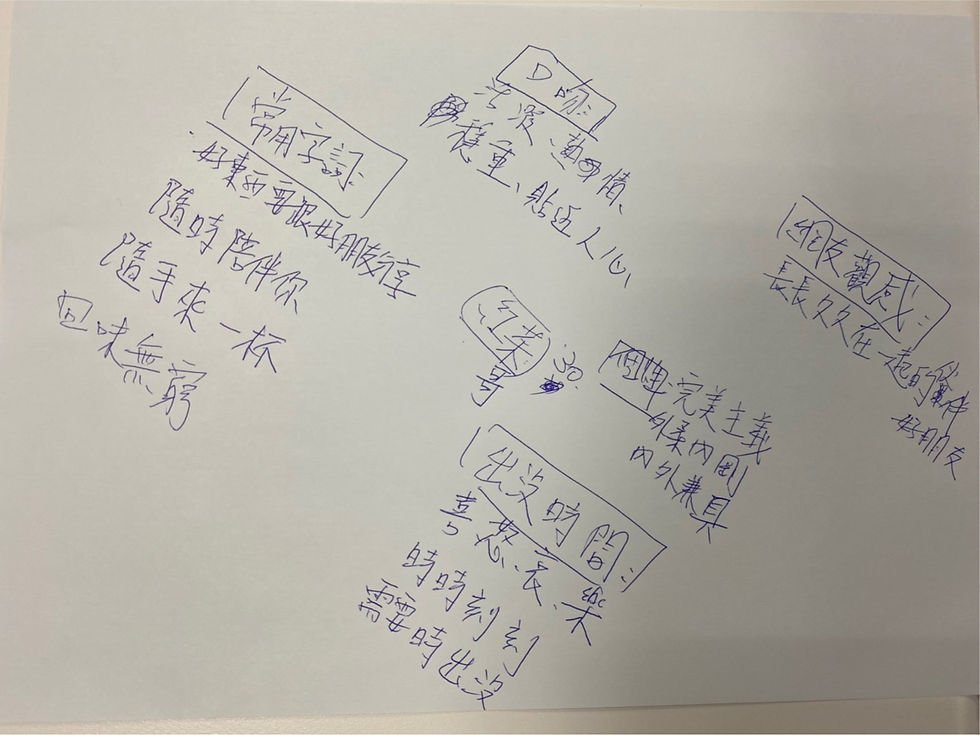 常用字詞:
好東西要跟好朋友分享
隨時陪伴你
隨手來一杯
回味無窮
口吻:
活潑、熱情、
穩重、貼近人心
紅茶
哥:30
個性:完美主義
外柔內剛
內外兼具
出沒時間:
喜、怒、哀、樂
時時刻刻
需要時出沒
網友觀感:
長長久久在一起的夥伴
好朋友